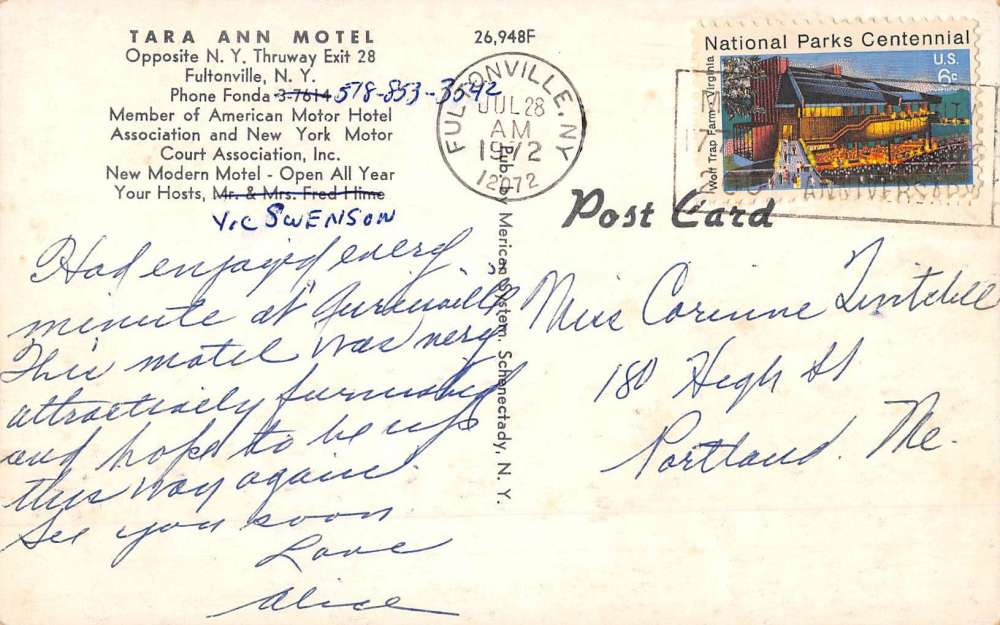 TARA ANN MOTEL
Opposite N. Y. Thruway Exit 28
Fultonville, N. Y.
Phone Fonda 3-7614 518-853-3542
Member of American Motor Hotel
Association and New York Motor
Court Association, Inc.
New Modern Motel - Open All Year
Your Hosts, Mr. & Mrs. Fred Hime
Vic SWENSON
Had enjoyed every
minute at
This motel was very
attractively furnished
and hope to be up
this way again.
See you soon
Love
Alice
26,948F
Pub. by Merican System. Schenectady, N. Y.
FULTONVILLE, NY
JUL 28
AM
1972
12072
National Parks Centennial
U.S.
6c
Wolf Trap Farm • Virginia
ANNIVERSARY
Post Card
Miss Corinne Twitchell
180 High St
Portland. Me.